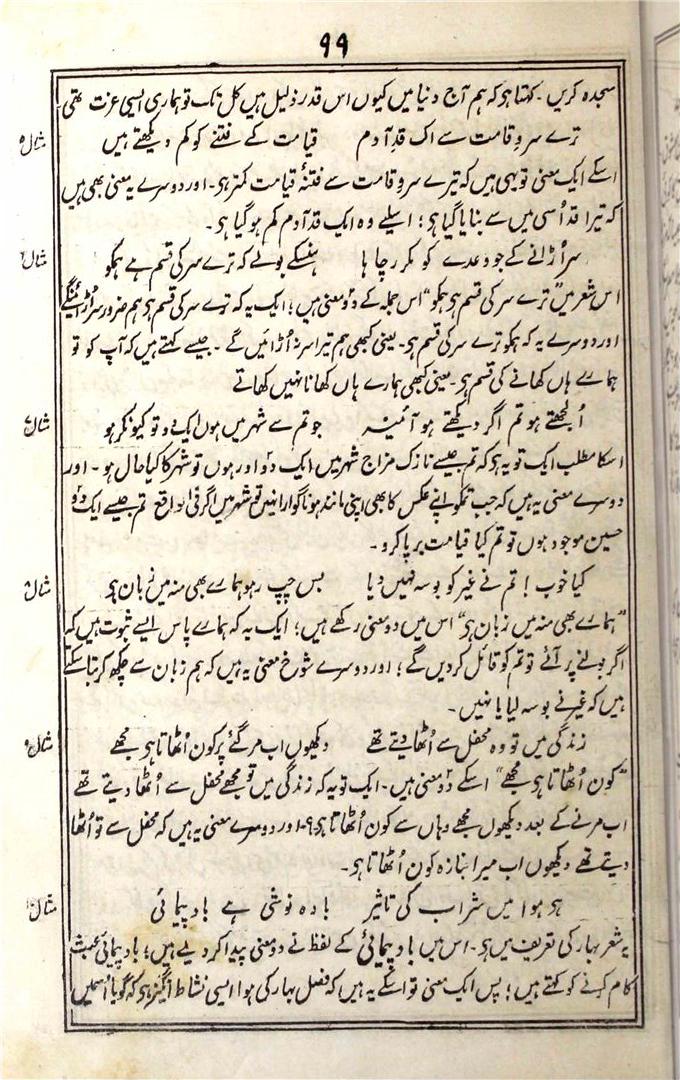 ۹۹
سجدہ کریں۔ کہتا ہی کہ ہم آج دنیا میں کیوں اس قدر ذلیل ہیں کل تک تو ہماری ایسی عزت تھی
مثال ۵ ترے سرو قامت سے اک قد آدم قیامت کے فتنے کو کم دیکھتے ہیں
اسکے ایک معنی تو یہی ہیں کہ تیرے سرو قامت سے فتنۂ قیامت کمتر ہی۔ اور دوسرے یہ معنی بھی ہیں
کہ تیرا قد اُسی میں سے بنایا گیا ہی؛ اسلیے وہ ایک قد آدم کم ہو گیا ہی۔
مثال ۶ سر اُڑانے کے جو وعدے کو مکرر چاہا ہنسکے بولے کہ ترے سر کی قسم ہے ہمکو
اس شعر میں ”ترے سر کی قسم ہی ہمکو“ اس جملہ کے دو معنی ہیں؛ ایک یہ کہ ترے سر کی قسم ہی ہم ضرور سر اُڑائینگے
اور دوسرے یہ کہ ہمکو ترے سر کی قسم ہی۔ یعنی کبھی ہم تیرا سر نہ اُڑائیں گے۔ جیسے کہتے ہیں کہ آپ کو تو
ہمارے ہاں کھانے کی قسم ہی۔ یعنی کبھی ہمارے ہاں کھانا نہیں کھاتے
مثال ۷ اُلجھتے ہو تم اگر دیکھتے ہو آئینہ جو تم سے شہر میں ہوں ایک دو تو کیونکر ہو
اسکا مطلب ایک تو یہ ہی کہ تم جیسے نازک مزاج شہر میں ایک دو اور ہوں تو شہر کا کیا حال ہو۔ اور
دوسرے معنی یہ ہیں کہ جب تمکو اپنے عکس کا بھی اپنی مانند ہونا گوارا نہیں تو شہر میں اگر فی الواقع تم جیسے ایک دو
حسین موجود ہوں تو تم کیا قیامت برپا کرو۔
مثال ۸ کیا خوب! تم نے غیر کو بوسہ نہیں دیا بس چپ رہو ہمارے بھی منہ میں زبان ہی
”ہمارے بھی منہ میں زبان ہی“ اس میں دو معنی رکھے ہیں؛ ایک یہ کہ ہمارے پاس ایسے ثبوت ہیں کہ
اگر بولنے پر آئے تو تم کو قائل کر دیں گے؛ اور دوسرے شوخ معنی یہ ہیں کہ ہم زبان سے چکھ کر بتا سکتے
ہیں کہ غیر نے بوسہ لیا یا نہیں۔
مثال ۹ زندگی میں تو وہ محفل سے اُٹھا دیتے تھے دیکھوں اب مر گئے پر کون اُٹھاتا ہی مجھے
”کون اُٹھاتا ہی مجھے“ اسکے دو معنی ہیں۔ ایک تو یہ کہ زندگی میں تو مجھے محفل سے اُٹھا دیتے تھے
اب مرنے کے بعد دیکھوں مجھے وہاں سے کون اُٹھاتا ہی؟ اور دوسرے معنی یہ ہیں کہ محفل سے تو اُٹھا
دیتے تھے دیکھوں اب میرا جنازہ کون اُٹھاتا ہی۔
مثال ۱۰ ہی ہوا میں شراب کی تاثیر بادہ نوشی ہے باد پیمائی
یہ شعر بہار کی تعریف میں ہی۔ اس میں باد پیمائی کے لفظ نے دو معنی پیدا کر دیے ہیں؛ باد پیمائی عبث
کام کرنے کو کہتے ہیں؛ پس ایک معنی تو اسکے یہ ہیں کہ فصل بہار کی ہوا ایسی نشاط انگیز ہی کہ گویا اُسمیں